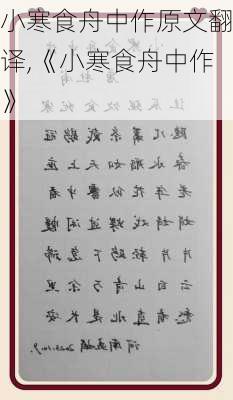 小寒食舟中作原文翻
译,《小寒食舟中作
》
小寒食舟中作
唐 杜甫
佳辰强饮食犹寒
隐几萧条戴鹖冠
春水船如天上坐
老年花似雾中看
娟娟戏蝶过闲幔
片片轻鸥下急湍
云白山青万余里
愁看直北是长安
河南